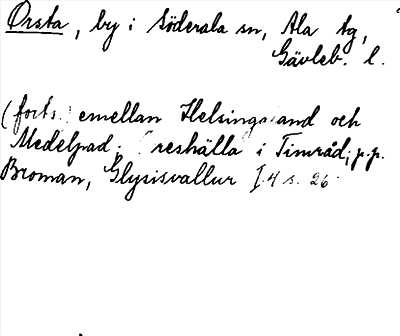 Orsta, by i Söderala sn, Ala tg,
Gävleb. l.
(forts.) emellan Helsingland och
Medelpad; reshälla i Timråd; p.p.
Broman, Glysisvallur I.4 s. 26